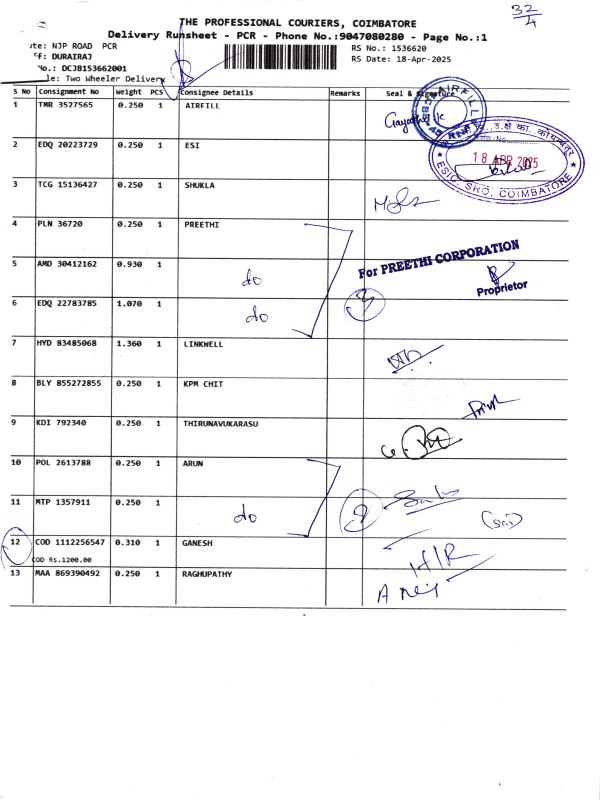 THE PROFESSIONAL COURIERS, COIMBATORE
32/4
Delivery Runsheet - PCR - Phone No.:9047080280 - Page No.:1
ute: NJP ROAD PCR
RS No.: 1536620
ff: DURAIRAJ
RS Date: 18-Apr-2025
No.: DCJB153662001
le: Two Wheeler Delivery
S No Consignment No Weight PCS Consignee Details Remarks Seal & Signature
1 TMR 3527565 0.250 1 AIRFILL
AIRFILL
2 EDQ 20223729 0.250 1 ESI
18 APR 2025
ESIC, SRO, COIMBATORE
3 TCG 15136427 0.250 1 SHUKLA
4 PLN 36720 0.250 1 PREETHI
For PREETHI CORPORATION
5 AMD 30412162 0.930 1 do
Proprietor
6 EDQ 22783785 1.070 1 do
7 HYD 83485068 1.360 1 LINKWELL
8 BLY 855272855 0.250 1 KPM CHIT
9 KDI 792340 0.250 1 THIRUNAVUKARASU
10 POL 2613788 0.250 1 ARUN
11 MTP 1357911 0.250 1 do
12 COD 1112256547 0.310 1 GANESH
COD Rs.1200.00
H/R
13 MAA 869390492 0.250 1 RAGHUPATHY